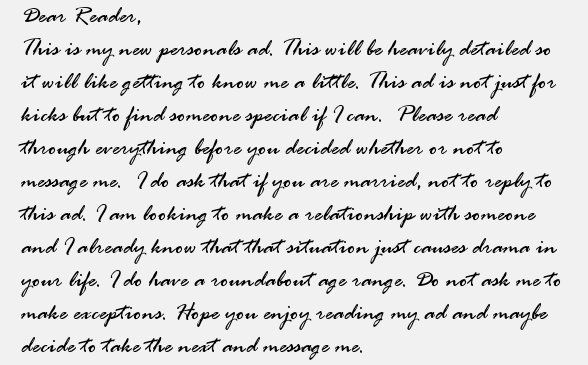 Dear Reader,
This is my new personals ad. This will be heavily detailed so
it will like getting to know me a little. This ad is not just for
kicks but to find someone special if I can. Please read
through everything before you decided whether or not to
message me. I do ask that if you are married, not to reply to
this ad. I am looking to make a relationship with someone
and I already know that that situation just causes drama in
your life. I do have a roundabout age range. Do not ask me to
make exceptions. Hope you enjoy reading my ad and maybe
decide to take the next and message me.